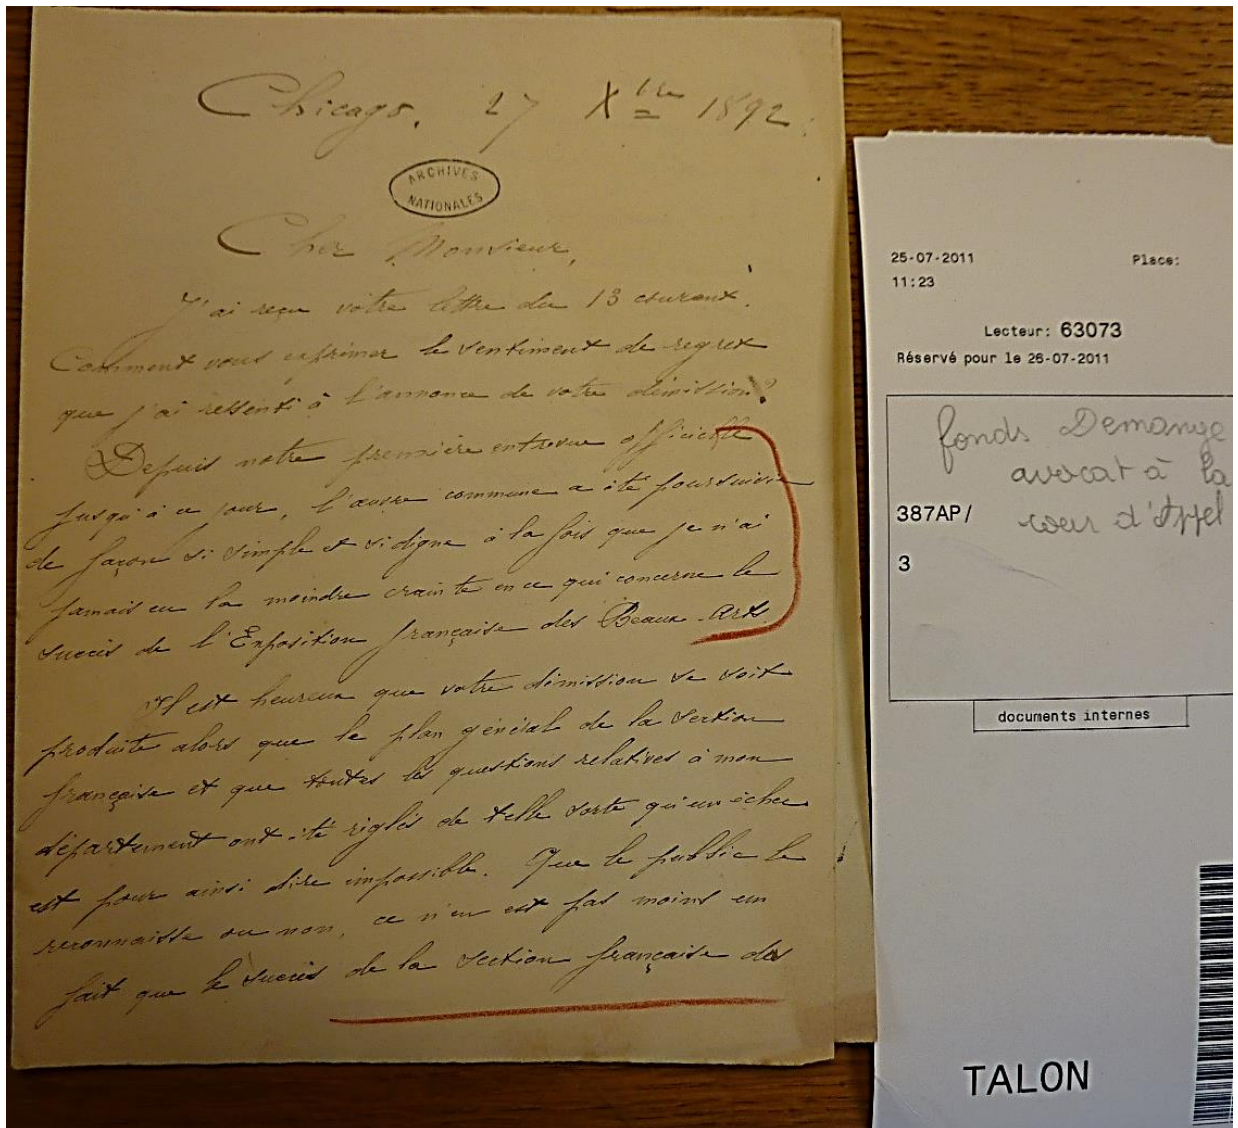 Chicago, 27 Xbre 1892.
ARCHIVES
NATIONALES
Cher Monsieur,
J'ai reçu votre lettre du 13 courant.
Comment vous exprimer le sentiment de regret
que j'ai ressenti à l'annonce de votre démission?
Depuis notre première entrevue officielle
jusqu'à ce jour, l'œuvre commune a été poursuivie
de façon si simple et si digne à la fois que je n'ai
jamais eu la moindre crainte en ce qui concerne le
succès de l'Exposition française des Beaux-Arts.
Il est heureux que votre démission se soit
produite alors que le plan général de la Section
française et que toutes les questions relatives à mon
département ont été réglés de telle sorte qu'un échec
est pour ainsi dire impossible. Que le public le
reconnaisse ou non, ce n'en est pas moins un
fait que le succès de la Section française des
25-07-2011 Place:
11:23
Lecteur: 63073
Réservé pour le 26-07-2011
fonds Demange
avocat à la
387AP/ cour d'Appel
3
documents internes
TALON